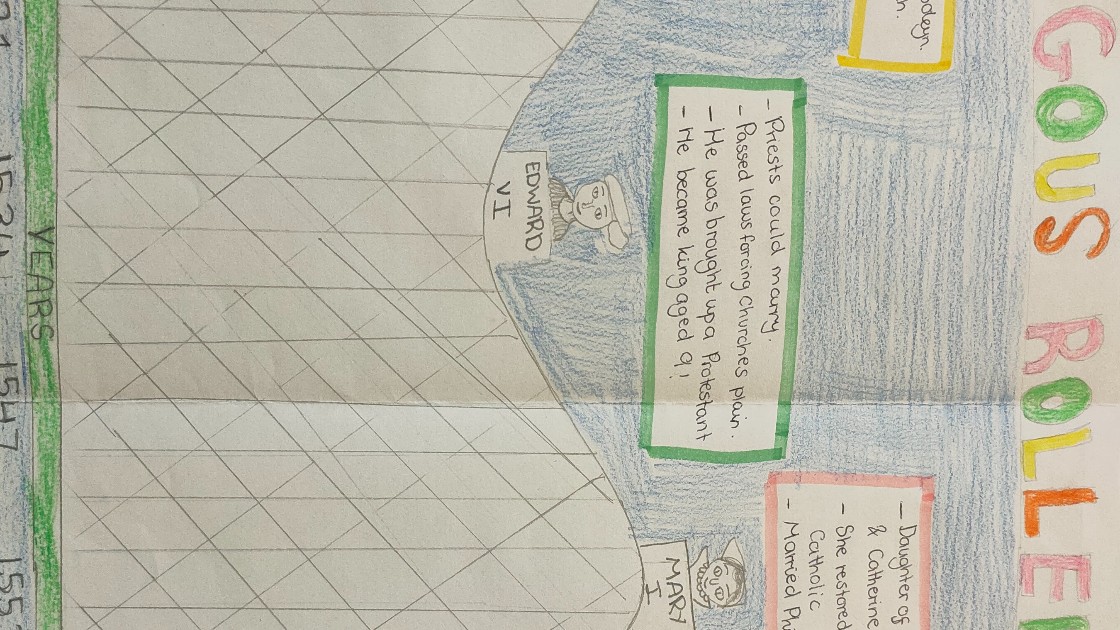 GOUS ROLLE
odeyn.
h.
- Priests could marry.
- Passed laws forcing churches plain.
- He was brought up a Protestant
- He became king aged 9!
- Daughter of
& Catherine
- She restored
Catholic
- Married Phi
EDWARD
VI
MARY
I
YEARS
1534 1547 155